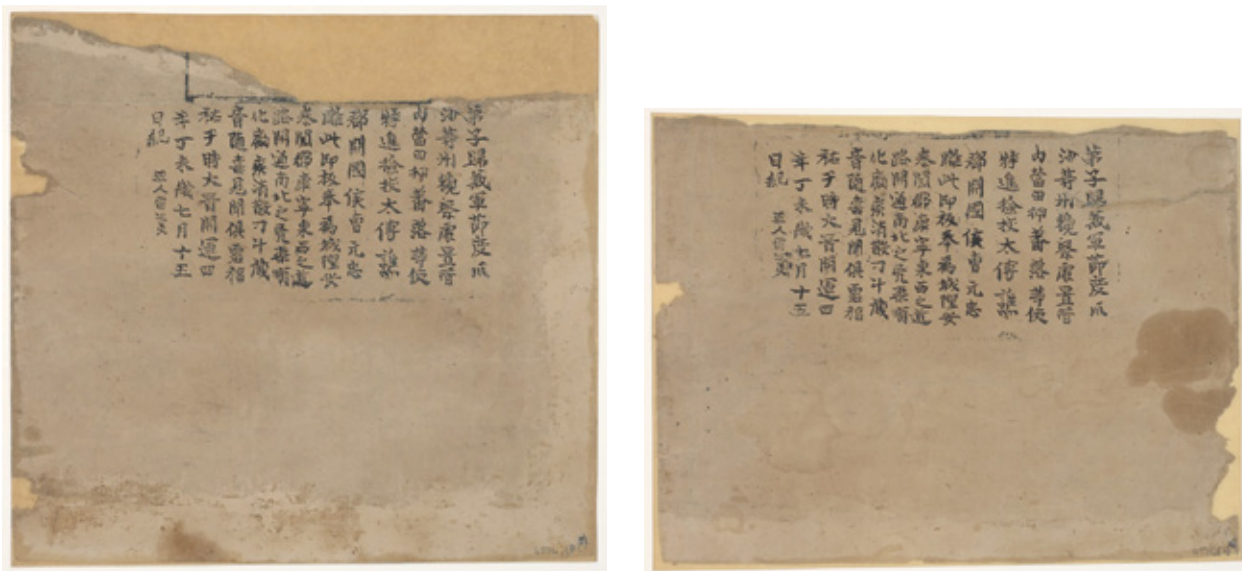 弟子歸義軍節度瓜
沙等州觀察處置管
內營田押蕃落等使
特進檢校太傅譙
郡開國侯曹元忠
雕此印板奉爲城隍安
泰闔郡康寧東西之道
路開通南北之兇渠順
化癘疾消散刁斗藏
音隨喜見聞俱霑福
祐于時大晉開運四
年丁未歲七月十五
日紀 匠人雷延美
弟子歸義軍節度瓜
沙等州觀察處置管
內營田押蕃落等使
特進檢校太傅譙
郡開國侯曹元忠
雕此印板奉爲城隍安
泰闔郡康寧東西之道
路開通南北之兇渠順
化癘疾消散刁斗藏
音隨喜見聞俱霑福
祐于時大晉開運四
年丁未歲七月十五
日紀 匠人雷延美